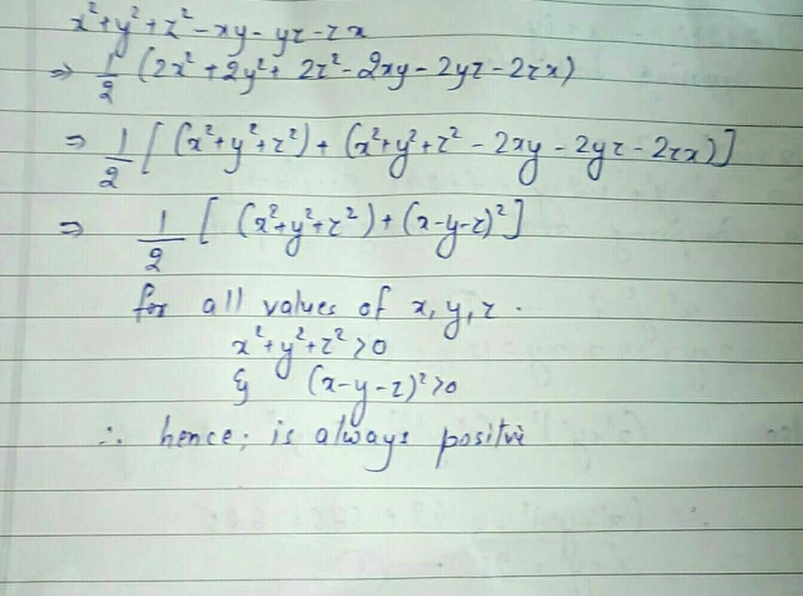 x²+y²+z²-xy-yz-zx
⇒ 1/2 (2x²+2y²+2z²-2xy-2yz-2zx)
⇒ 1/2 [(x²+y²+z²)+(x²+y²+z²-2xy-2yz-2zx)]
⇒ 1/2 [(x²+y²+z²)+(x-y-z)²]
for all values of x, y, z.
x²+y²+z²>0
& (x-y-z)²>0
∴ hence; is always positive